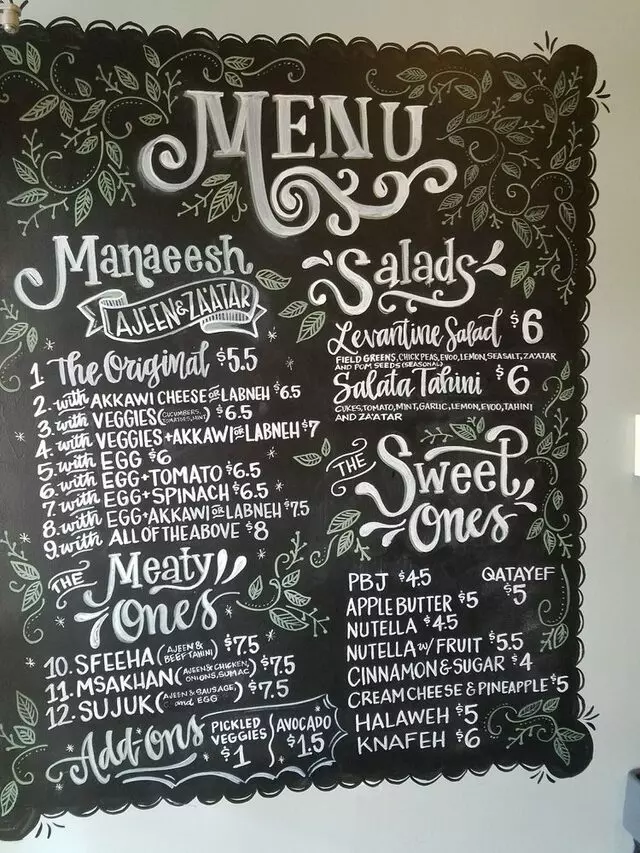 MENU
Manaeesh
AJEEN & ZA'ATAR
1 The Original $5.5
2. with AKKAWI CHEESE OR LABNEH $6.5
3. with VEGGIES (CUCUMBERS, TOMATOES, MINT) $6.5
4. with VEGGIES + AKKAWI OR LABNEH $7
5. with EGG $6
6. with EGG + TOMATO $6.5
7. with EGG + SPINACH $6.5
8. with EGG + AKKAWI OR LABNEH $7.5
9. with ALL OF THE ABOVE $8
THE Meaty Ones
10. SFEEHA (AJEEN & BEEF TAHINI) $7.5
11. MSAKHAN (AJEEN & CHICKEN, ONIONS, SUMAC) $7.5
12. SUJUK (AJEEN & SAUSAGE, and EGG) $7.5
Add-ons
PICKLED VEGGIES $1
AVOCADO $1.5
Salads
Levantine Salad $6
FIELD GREENS, CHICKPEAS, EVOO, LEMON, SEA SALT, ZA'ATAR
AND POM SEEDS (SEASONAL)
Salata Tahini $6
CUKES, TOMATO, MINT, GARLIC, LEMON, EVOO, TAHINI
AND ZA'ATAR
THE Sweet Ones
PBJ $4.5
QATAYEF $5
APPLE BUTTER $5
NUTELLA $4.5
NUTELLA w/ FRUIT $5.5
CINNAMON & SUGAR $4
CREAM CHEESE & PINEAPPLE $5
HALAWEH $5
KNAFEH $6